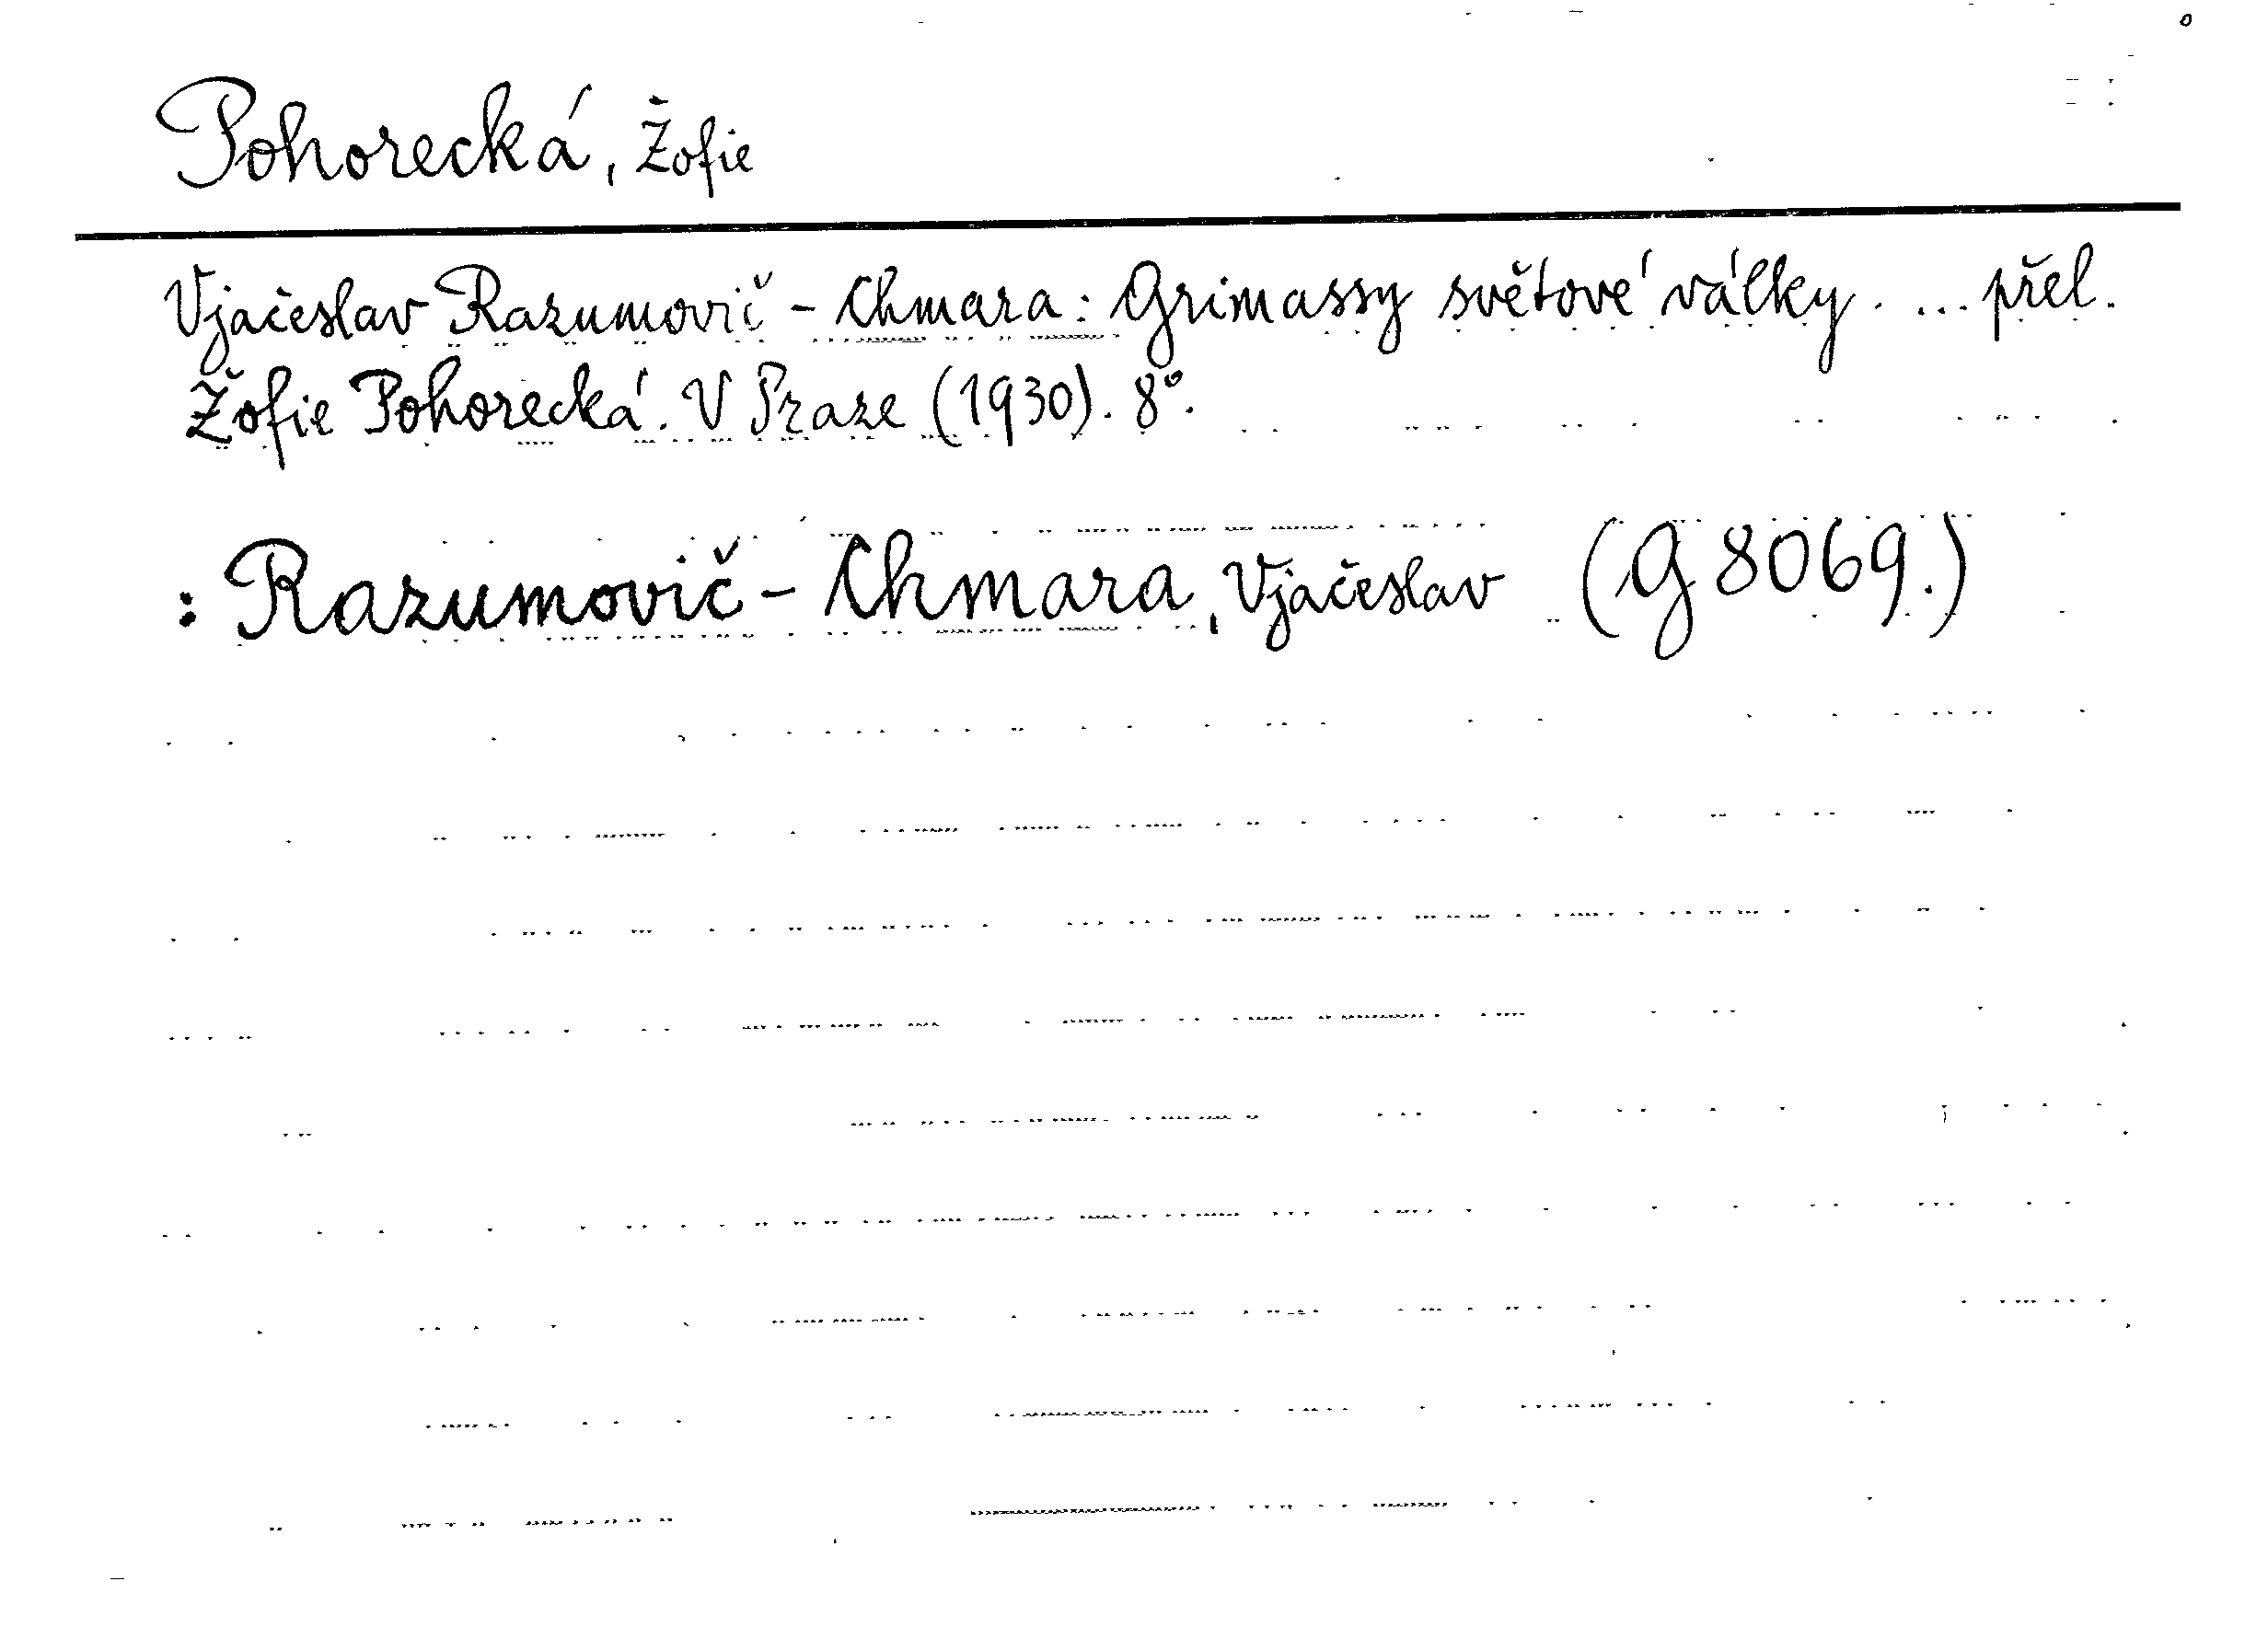 Pohorecká, Žofie
Vjačeslav Razumovič - Chmara: Grimassy světové války. ... přel.
Žofie Pohorecká. V Praze (1930). 8°.
: Razumovič - Chmara, Vjačeslav (G 8069.)